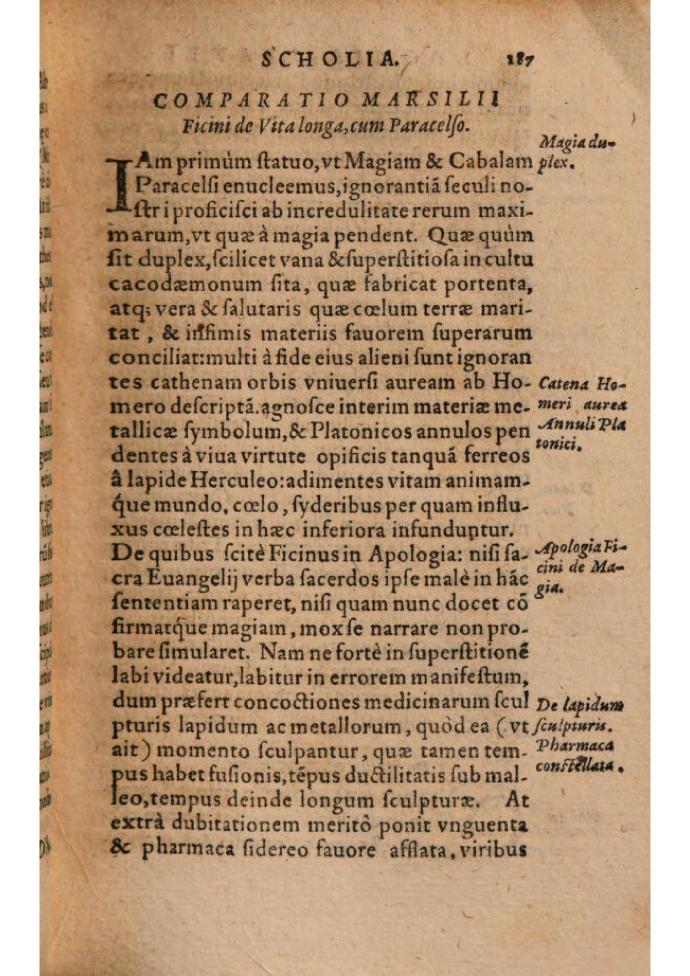 SCHOLIA. 187
COMPARATIO MARSILII
Ficini de Vita longa, cum Paracelso.
Magia du-
plex.
IAm primùm statuo, vt Magiam & Cabalam
Paracelsi enucleemus, ignorantiā seculi no-
stri proficisci ab incredulitate rerum maxi-
marum, vt quæ à magia pendent. Quæ quùm
sit duplex, scilicet vana & superstitiosa in cultu
cacodæmonum sita, quæ fabricat portenta,
atq; vera & salutaris quæ cœlum terræ mari-
tat, & infimis materiis fauorem superarum
conciliat: multi à fide eius alieni sunt ignoran
tes cathenam orbis vniuersi auream ab Ho-
mero descriptā. agnosce interim materiæ me-
tallicæ symbolum, & Platonicos annulos pen
dentes à viua virtute opificis tanquā ferreos
â lapide Herculeo: adimentes vitam animam-
q́ue mundo, cœlo, syderibus per quam influ-
xus cœlestes in hæc inferiora infunduntur.
Catena Ho-
meri aurea
Annuli Pla
tonici.
De quibus scitè Ficinus in Apologia: nisi sa-
cra Euangelij verba sacerdos ipse malè in hāc
sententiam raperet, nisi quam nunc docet cō
firmatq́ue magiam, mox se narrare non pro-
bare simularet. Nam ne fortè in superstitionē
labi videatur, labitur in errorem manifestum,
dum præfert concoctiones medicinarum scul
pturis lapidum ac metallorum, quòd ea (vt
ait) momento sculpantur, quæ tamen tem-
pus habet fusionis, tēpus ductilitatis sub mal-
leo, tempus deinde longum sculpturæ. At
extrà dubitationem meritò ponit vnguenta
& pharmaca sidereo fauore afflata, viribus
Apologia Fi-
cini de Ma-
gia.
De lapidum
sculpturis.
Pharmaca
constellata.